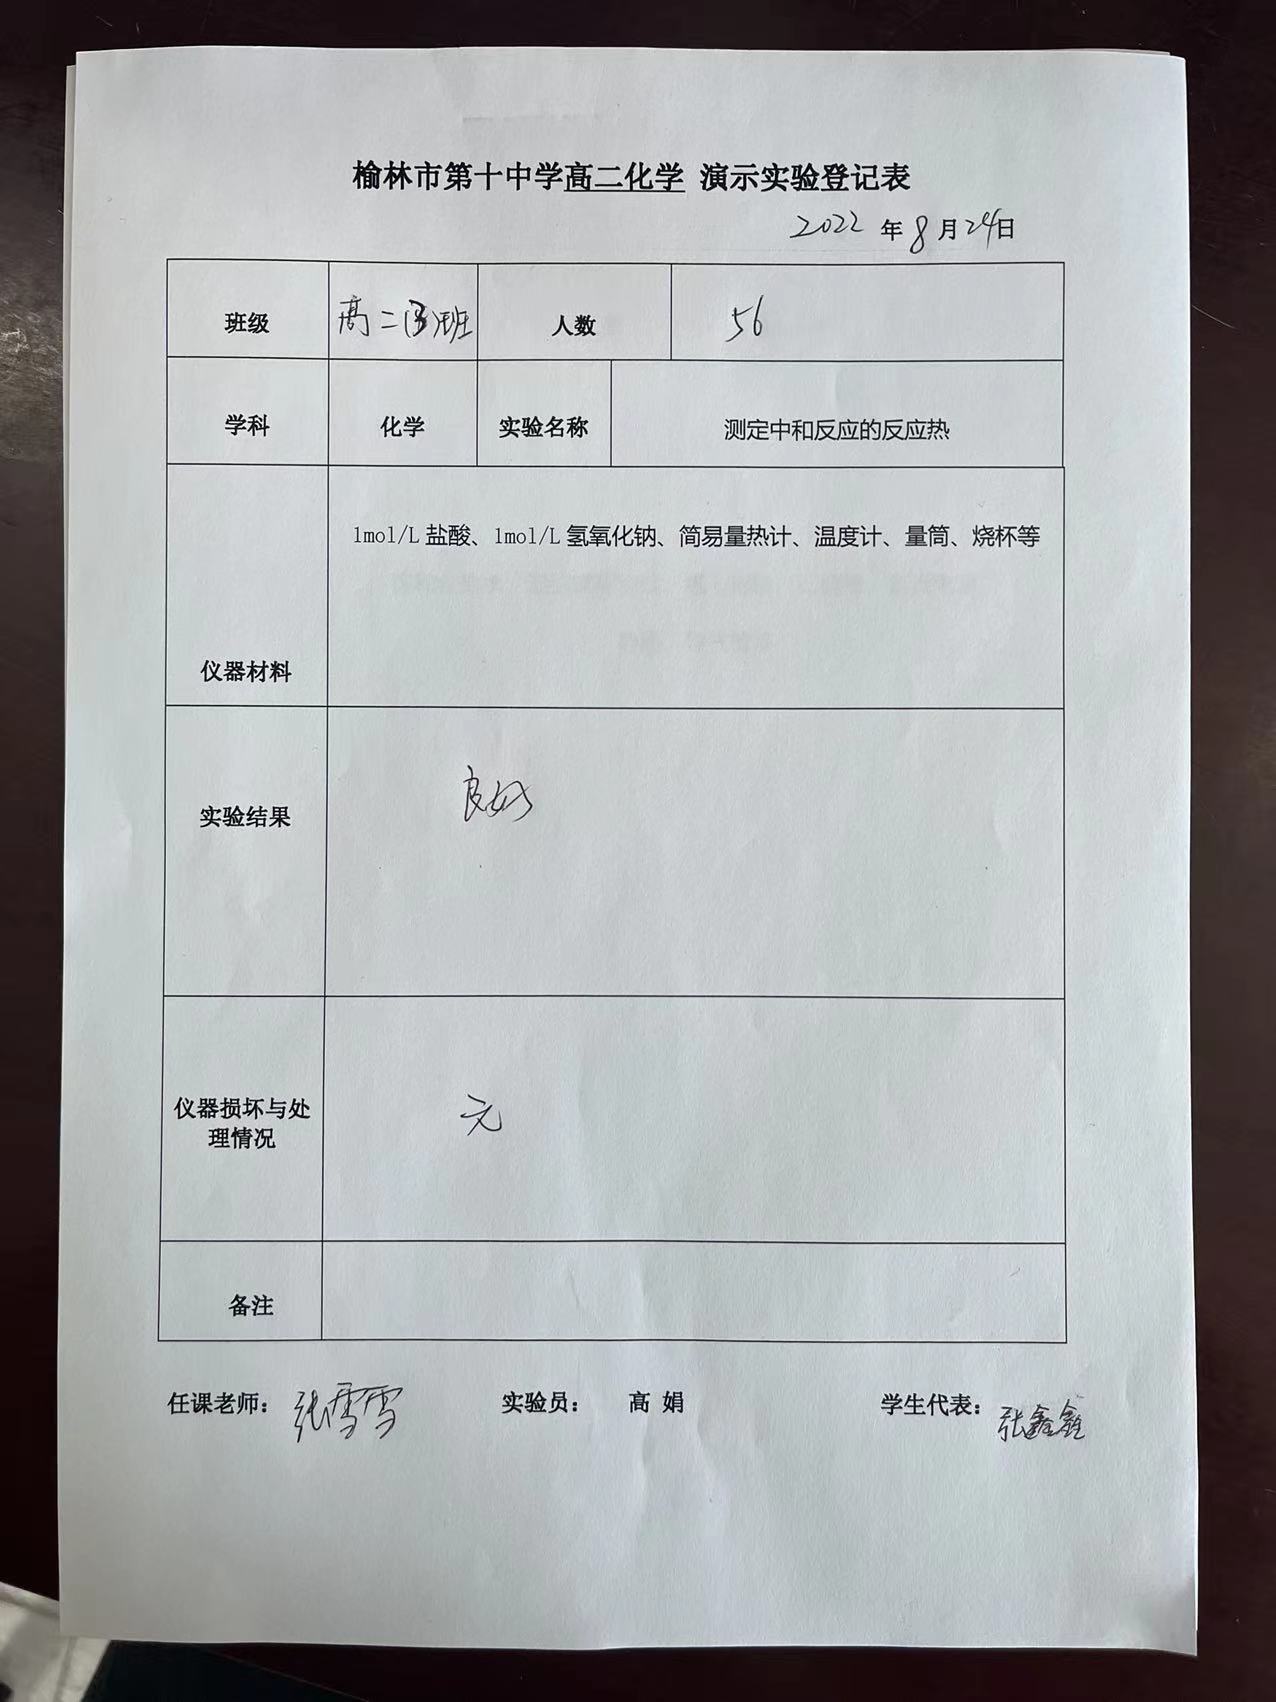 榆林市第十中学高二化学 演示实验登记表
2022 年 8 月 24日
班级 高二(3)班 人数 56
学科 化学 实验名称 测定中和反应的反应热
1mol/L 盐酸、1mol/L 氢氧化钠、简易量热计、温度计、量筒、烧杯等
仪器材料
实验结果 良好
仪器损坏与处
理情况
无
备注
任课老师: 张雪雪 实验员: 高 娟 学生代表: 张鑫鑫